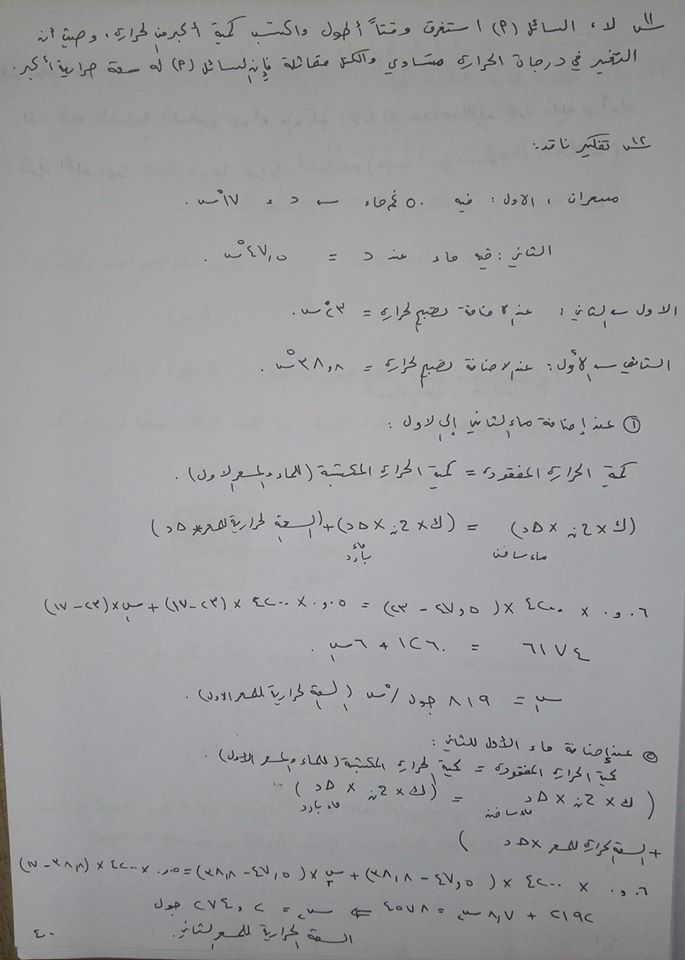 س١١ لا، السائل (٢) استغرق وقتاً أطول واكتسب كمية أكبر من الحرارة، وحيث أن
التغير في درجات الحرارة متساوي والكتل متماثلة فإن السائل (٢) له سعة حرارية أكبر.
س١٢ تفكير ناقد:
مسعران، الاول: فيه ٥٠ غم ماء ← د = ١٧°س.
الثاني: فيه ماء عند د = ٤٧,٥°س.
الاول ← الثاني: عند الاضافة تصبح الحرارة = ٢٣°س.
الثاني ← الأول: عند الاضافة تصبح الحرارة = ٣٨,٨°س.
① عند إضافة ماء الثاني إلى الاول:
كمية الحرارة المفقودة = كمية الحرارة المكتسبة (للماء والمسعر الاول).
(ك × حن × ∆د) = (ك × حن × ∆د) + (السعة الحرارية للمسعر * ∆د)
ماء ساخن ماء بارد
٠,٠٦ × ٤٢٠٠ × (٤٧,٥ - ٢٣) = ٠,٠٥ × ٤٢٠٠ × (٢٣-١٧) + س × (٢٣-١٧)
٦١٧٤ = ١٢٦٠ + ٦س.
س = ٨١٩ جول/°س (السعة الحرارية للمسعر الاول).
② عند إضافة ماء الأول للثاني:
كمية الحرارة المفقودة = كمية الحرارة المكتسبة (للماء والمسعر الأول).
(ك × حن × ∆د = (ك × حن × ∆د)
ماء ساخن ماء بارد
+ السعة الحرارية للمسعر × ∆د)
٠,٠٦ × ٤٢٠٠ × (٤٧,٥ - ٣٨,٨) + س٢ × (٤٧,٥-٣٨,٨) = ٠,٠٥ × ٤٢٠٠ × (٣٨,٨-١٧)
٢١٩٢ + ٨,٧ س = ٤٥٧٨ ⇐ س = ٢٧٤,٢ جول
السعة الحرارية للمسعر الثاني.
٤٠